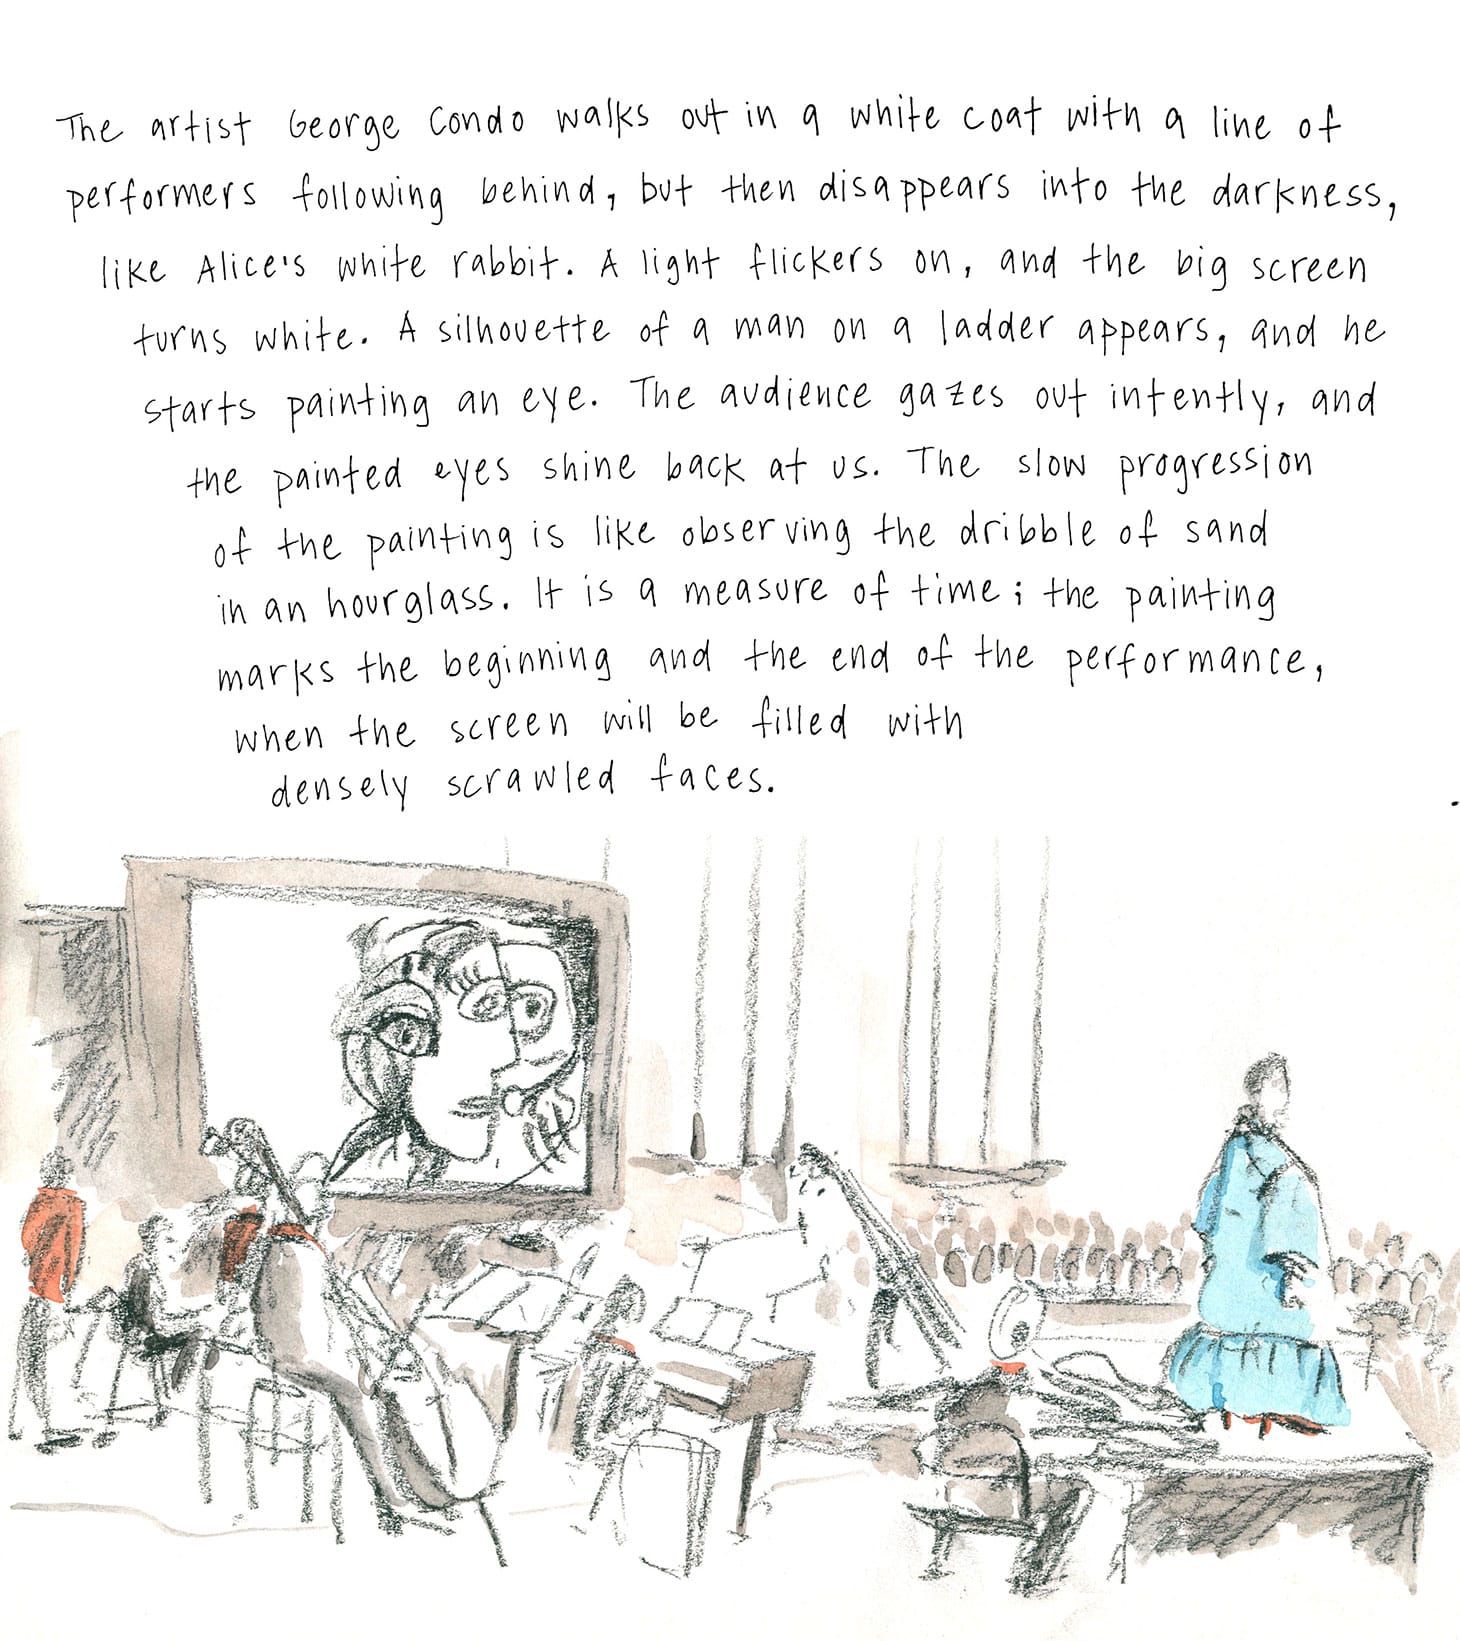 The artist George Condo walks out in a white coat with a line of
performers following behind, but then disappears into the darkness,
like Alice's white rabbit. A light flickers on, and the big screen
turns white. A silhouette of a man on a ladder appears, and he
starts painting an eye. The audience gazes out intently, and
the painted eyes shine back at us. The slow progression
of the painting is like observing the dribble of sand
in an hourglass. It is a measure of time; the painting
marks the beginning and the end of the performance,
when the screen will be filled with
densely scrawled faces.